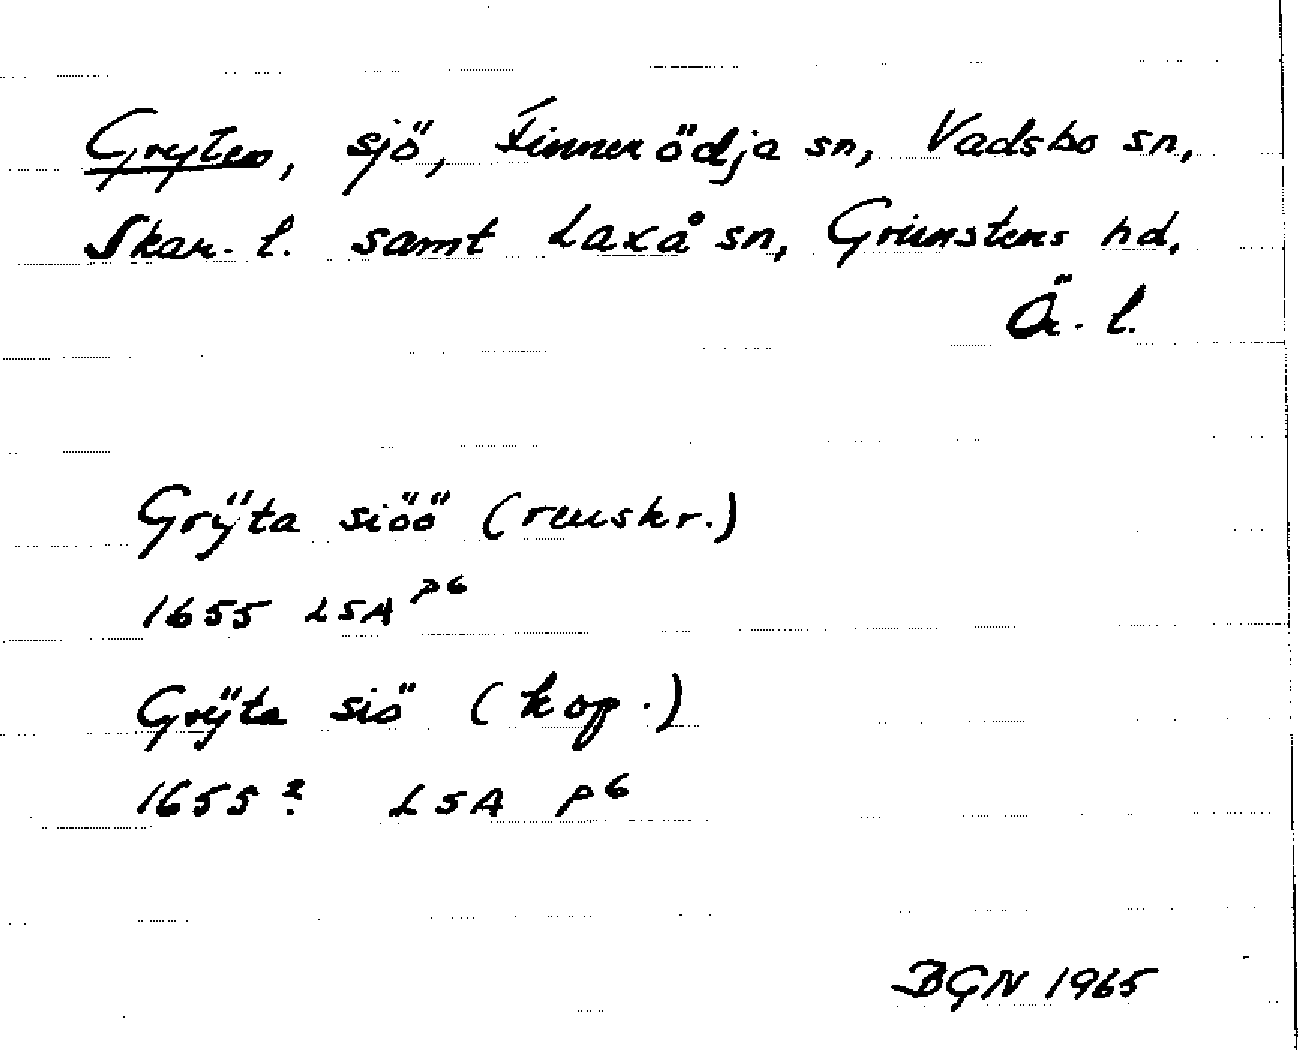 Gryten, sjö, Finnerödja sn, Vadsbo sn,
Skar. l. samt Laxå sn, Grimstens hd,
Ö. l.
Grÿta siöö (renskr.)
1655 LSA P6
Grÿta siö (kop.)
1655? LSA P6
BGN 1965